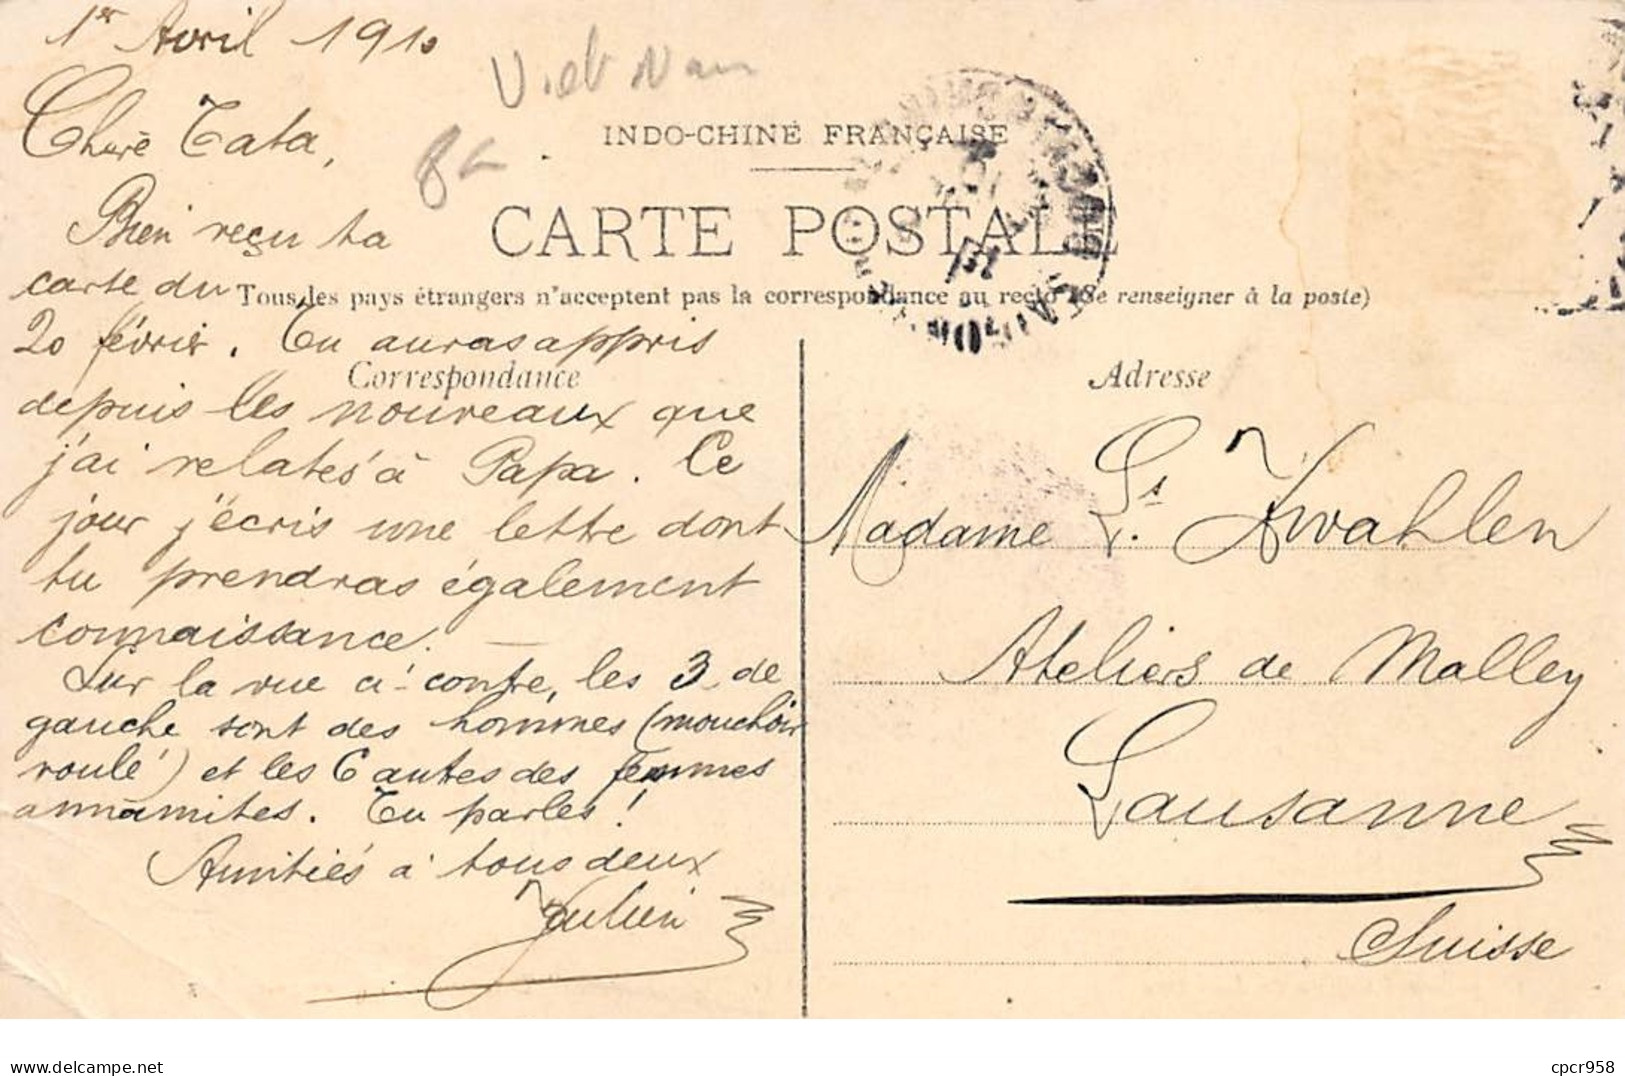 1er Avril 1910
Viet Nam
Chère Tata,
8€
INDO-CHINE FRANÇAISE
CARTE POSTALE
Bien reçu ta
carte du
Tous les pays étrangers n'acceptent pas la correspondance au recto (Se renseigner à la poste)
20 février. Tu auras appris
Correspondance
depuis les nouveaux que
j'ai relatés à Papa. Ce
jour j'écris une lettre dont
tu prendras également
connaissance. —
Sur la vue ci-contre, les 3 de
gauche sont des hommes (mouchoir
roulé) et les 6 autes des femmes
annamites. Tu parles!
Amitiés à tous deux
Julien
Adresse
Madame Ls. Zwahlen
Ateliers de Malley
Lausanne
Suisse
cpcr958